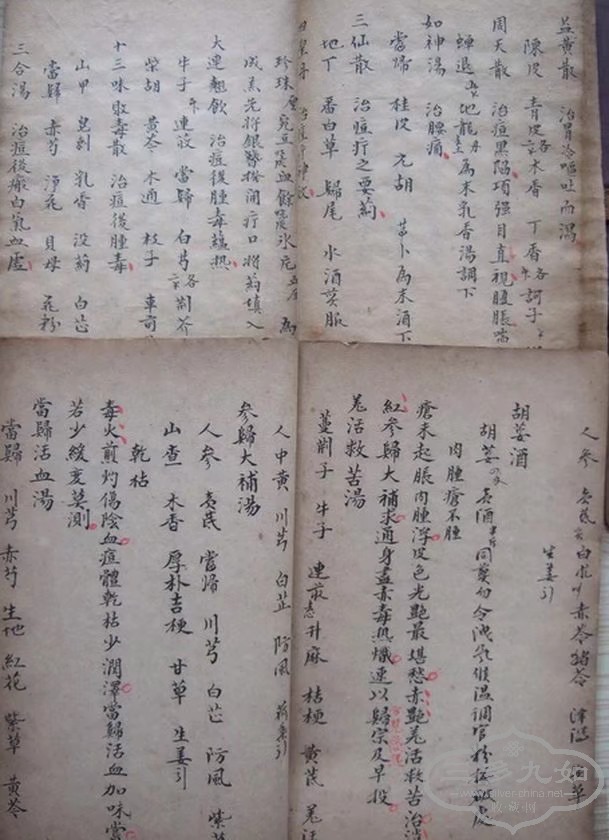 益黄散 治胃冷嘔吐而瀉
陳皮 青皮 木香 丁香 訶子
周天散 治痘黑陷項强目直視腹脹喘
蟬退 地龍 為末乳香湯調下
如神湯 治腰痛
當歸 桂皮 元胡 為末酒下
三仙散 治痘疔之要药
地丁 番白草 歸尾 水酒煎服
珍珠 豌豆
成羔先将銀簪撥開疔口將药填入
大連翹飲 治痘後腫毒蘊熱
牛子 連翹 當歸 白芍 荆芥
柴胡 黄芩 木通 枝子 車前
十三味敗毒散 治痘後腫毒
山甲 皂刺 乳香 没药 白芷
當歸 赤芍 淨花 貝母 花粉
三合湯 治痘後癥白氣血虚
人参 白朮 赤苓 猪苓 澤瀉 草
生姜引
胡荽酒
胡荽 酒 同煎勿令洩氣候温
肉腫瘡不腫
瘡未起脹肉腫浮皮色光艷最堪愁赤艷羌活救苦治
紅参歸大補求通身盡赤毒熱熾速以歸宗及早投
羌活救苦湯
蔓荆子 牛子 連翹 升麻 桔梗 黄芪 羌活
人中黄 川芎 白芷 防風
参歸大補湯
人参 當歸 川芎 白芷 防風 紫草
山查 木香 厚朴 吉梗 甘草 生姜引
乾枯
毒火煎灼傷陰血痘體乾枯少潤澤當歸活血加味嘗
若少緩变莫測
當歸活血湯
當歸 川芎 赤芍 生地 紅花 紫草 黄苓
三多九如
收藏網